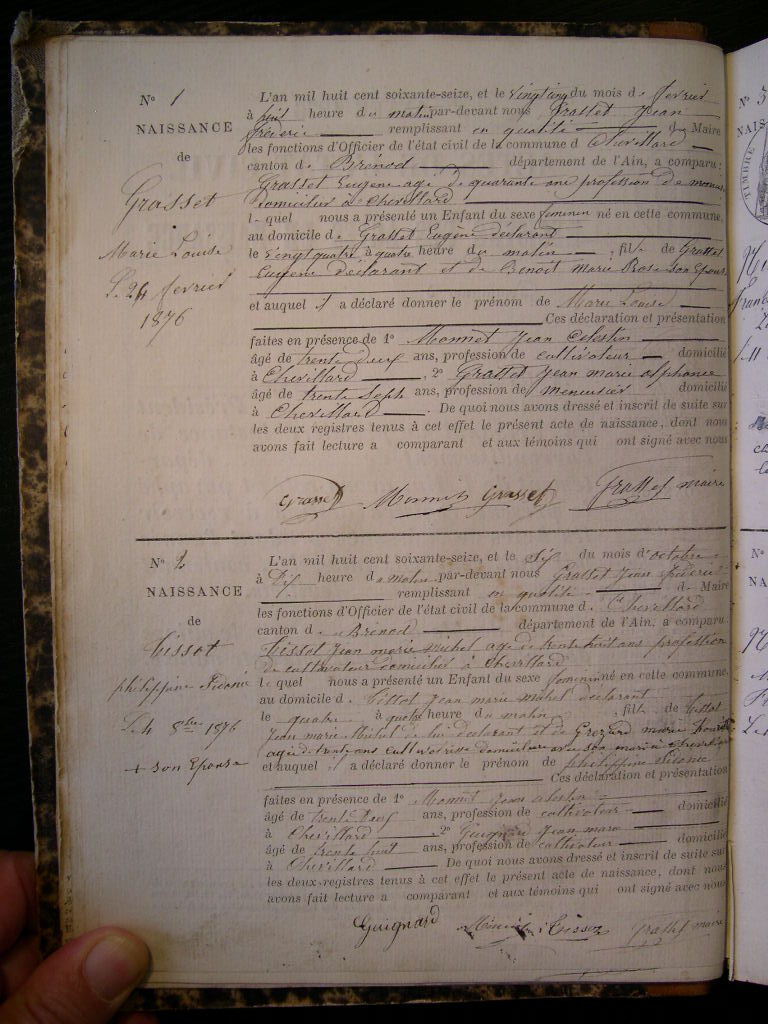 N° 1
NAISSANCE
de
Grasset
Marie Louise
L. 24 fevrier
1876
L'an mil huit cent soixante-seize, et le vingt cinq du mois de fevrier
à huit heure du matin par-devant nous Grasset Jean
Frederic remplissant en qualité de Maire
les fonctions d'Officier de l'état civil de la commune d Chevillard
canton de Brénod département de l'Ain, a comparu :
Grasset Eugene age de quarante ans profession de menui
domicilier à Chevillard
lequel nous a présenté un Enfant du sexe feminin né en cette commune,
au domicile de Grasset Eugène déclarant
le vingt quatre à quatre heure du matin ; fil de Grasset
Eugene déclarant et de Benoit marie Rose son Epouse
et auquel il a déclaré donner le prénom de Marie Louise
Ces déclaration et présentation
faites en présence de 1° Monnet Jean Celestin
âgé de trente deux ans, profession de cultivateur domicilié
à Chevillard, 2° Grasset Jean marie alphonse
âgé de trente Sept ans, profession de menuisier domicilié
à Chevillard. De quoi nous avons dressé et inscrit de suite sur
les deux registres tenus à cet effet le présent acte de naissance, dont nous
avons fait lecture a comparant et aux témoins qui ont signé avec nous
Grasset Monnet Grasset Grasset maire
N° 2
NAISSANCE
de
Tissot
philippine Sidonie
Le 4 8bre 1876
+ son Epouse
L'an mil huit cent soixante-seize, et le Six du mois d'octobre
à Dix heure du matin par-devant nous Grasset Jean frederic
remplissant en qualité de Maire
les fonctions d'Officier de l'état civil de la commune d Chevillard
canton de Brénod département de l'Ain, a comparu :
Tissot Jean marie Michel age de trente huit ans profession
de cultivateur domicilié à Chevillard
lequel nous a présenté un Enfant du sexe feminin né en cette commune
au domicile d. Tissot Jean marie Michel déclarant
le quatre à quatre heure du matin, fil de Tissot
Jean marie Michel de lui declarant et de Grozard marie
agée de trente ans cultivatrisse domicilier avec son mari à Chevillard
et auquel il a déclaré donner le prénom de philippine Sidonie
Ces déclaration et présentation
faites en présence de 1° Monnet Jean celestin
âgé de trente Deux ans, profession de cultivateur domicilié
à Chevillard, 2° Guignard Jean marie
âgé de trente huit ans, profession de cultivateur domicilié
à Chevillard. De quoi nous avons dressé et inscrit de suite sur
les deux registres tenus à cet effet le présent acte de naissance, dont nous
avons fait lecture a comparant et aux témoins qui ont signé avec nous
Guignard Tissot Grasset maire
N° 3
NAIS
TIMBRE
N°
NA